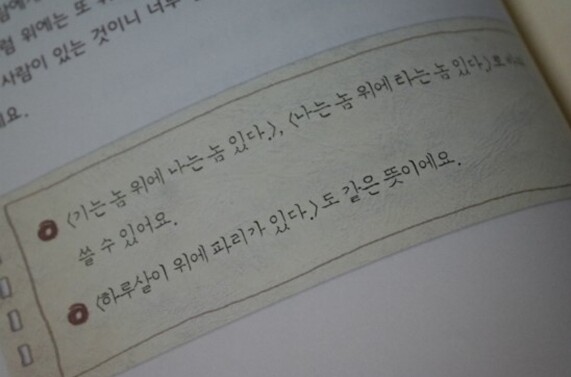 럼 위에는 또
사람이 있는 것이니 너무
요.
<기는 놈 위에 나는 놈 있다.>, <나는 놈 위에 타는 놈 있다.>로
쓸 수 있어요.
<하루살이 위에 파리가 있다.>도 같은 뜻이에요.